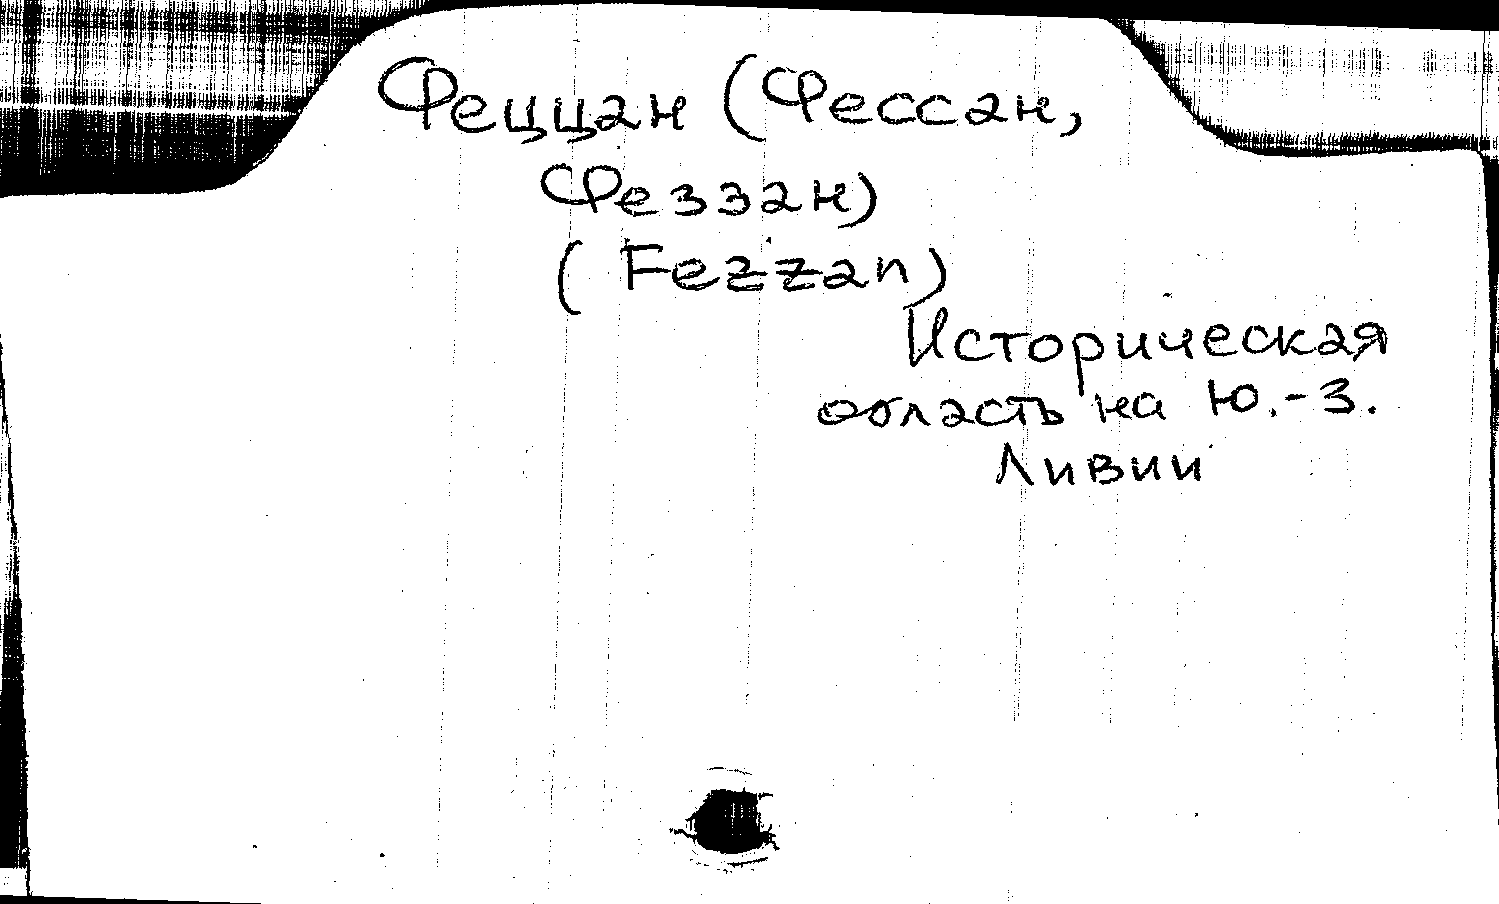 Феццан (Фессан,
Феззан)
(Fezzan)
Историческая
область на Ю.-З.
Ливии